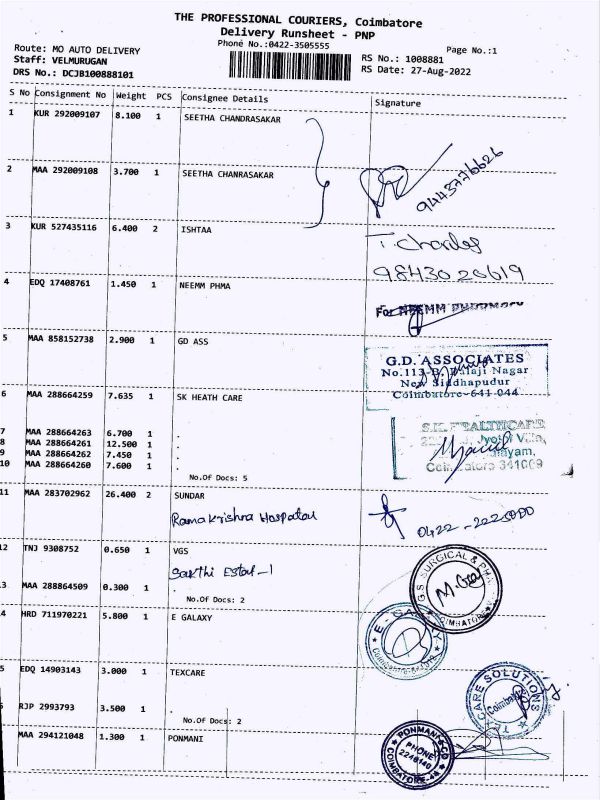 THE PROFESSIONAL COURIERS, Coimbatore
Delivery Runsheet - PNP
Phone No.:0422-3505555
Page No.:1
Route: MO AUTO DELIVERY
Staff: VELMURUGAN
DRS No.: DCJB100888101
RS No.: 1008881
RS Date: 27-Aug-2022
S No Consignment No Weight PCS Consignee Details Signature
1 KUR 292009107 8.100 1 SEETHA CHANDRASAKAR
2 MAA 292009108 3.700 1 SEETHA CHANRASAKAR
9443776626
3 KUR 527435116 6.400 2 ISHTAA
T. Charles
9843020619
4 EDQ 17408761 1.450 1 NEEMM PHMA
For NEEMM
5 MAA 858152738 2.900 1 GD ASS
G.D. ASSOCIATES
No.113-B, Balaji Nagar
New Siddhapudur
Coimbatore-641 044
6 MAA 288664259 7.635 1 SK HEATH CARE
7 MAA 288664263 6.700 1 .
8 MAA 288664261 12.500 1 .
9 MAA 288664262 7.450 1 .
10 MAA 288664260 7.600 1 .
No.Of Docs: 5
S.K. HEALTHCARE
Jyothi Villa,
11 MAA 283702962 26.400 2 SUNDAR
Ramakrishna Hospatau
0422-2225000
12 TNJ 9308752 0.650 1 VGS
Sakthi Estat-1
G S SURGICAL &
COIMBATORE
3 MAA 288864509 0.300 1 .
No.Of Docs: 2
4 HRD 711970221 5.800 1 E GALAXY
E - GALAXY
Coimbatore
5 EDQ 14903143 3.000 1 TEXCARE
TEXCARE SOLUTIONS
Coimbatore
6 RJP 2993793 3.500 1 .
No.Of Docs: 2
MAA 294121048 1.300 1 PONMANI
PONMANI & CO
PHONE
2246140
COIMBATORE-44